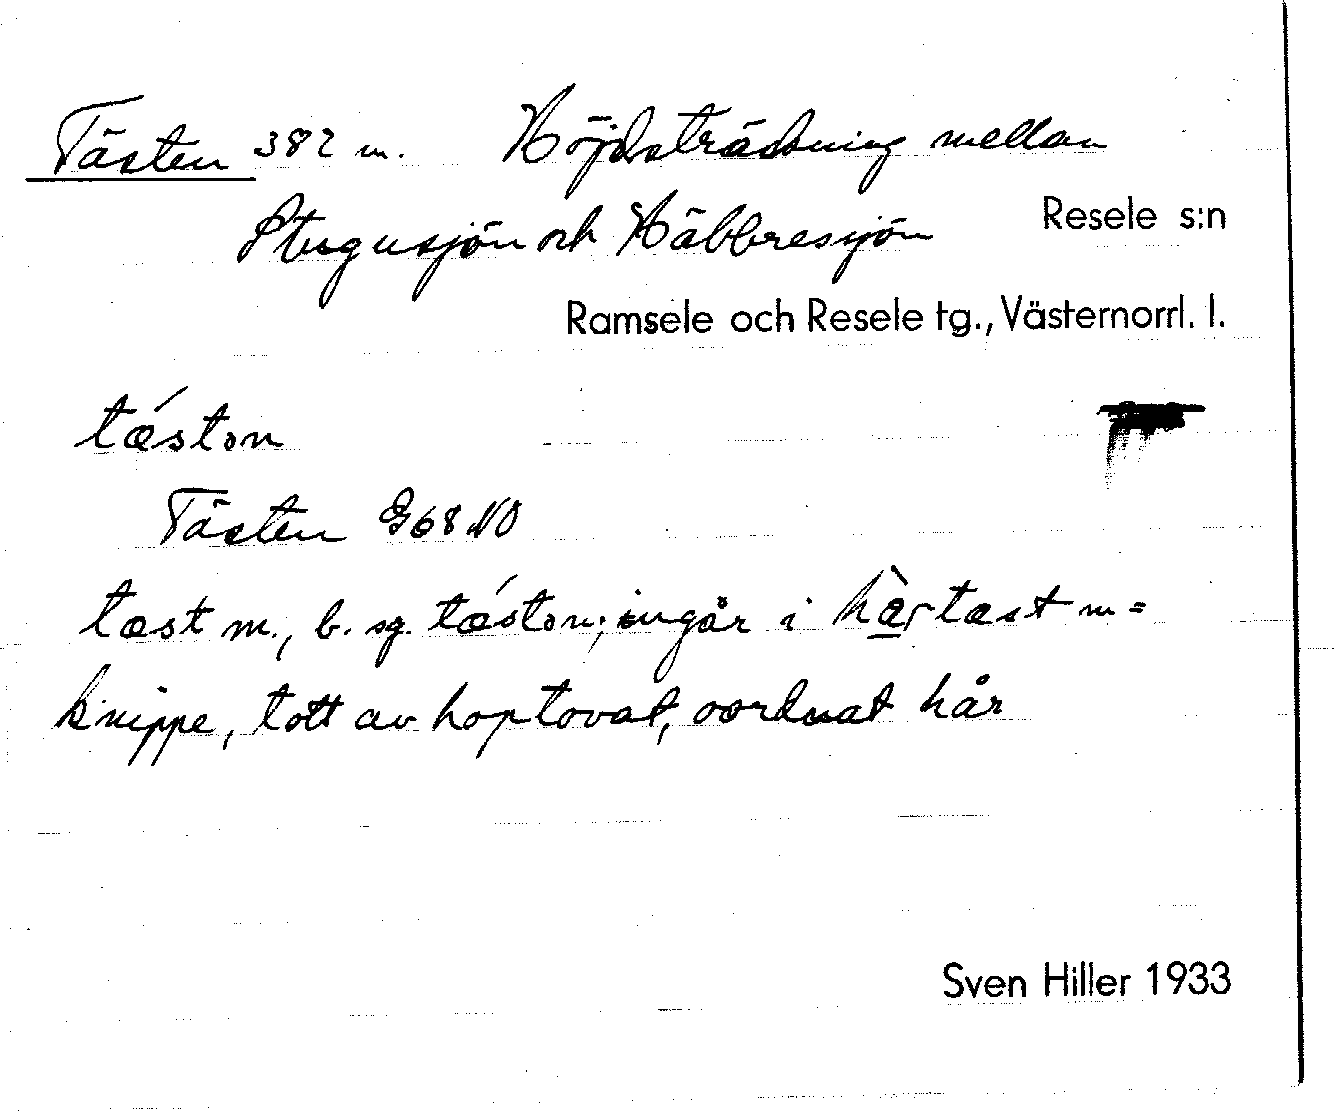 Tästen 382 m. Höjdsträckning mellan
Stugusjön och Häbbresjön Resele s:n
Ramsele och Resele tg., Västernorrl. l.
tǽston
Tästen G68 NO
tæst m., b. sg. tǽston; ingår i hàrtæst m =
knippe, tott av hoptovat, oordnat hår
Sven Hiller 1933